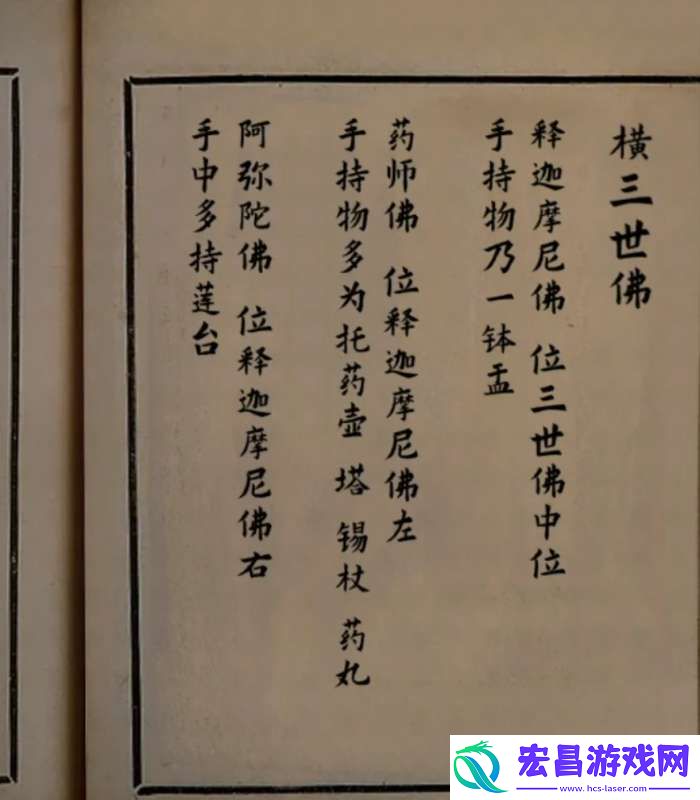 横三世佛
释迦摩尼佛 位三世佛中位
手持物乃一钵盂
药师佛 位释迦摩尼佛左
手持物多为托药壶 塔 锡杖 药丸
阿弥陀佛 位释迦摩尼佛右
手中多持莲台
宏昌游戏网
www.hcs-laser.com